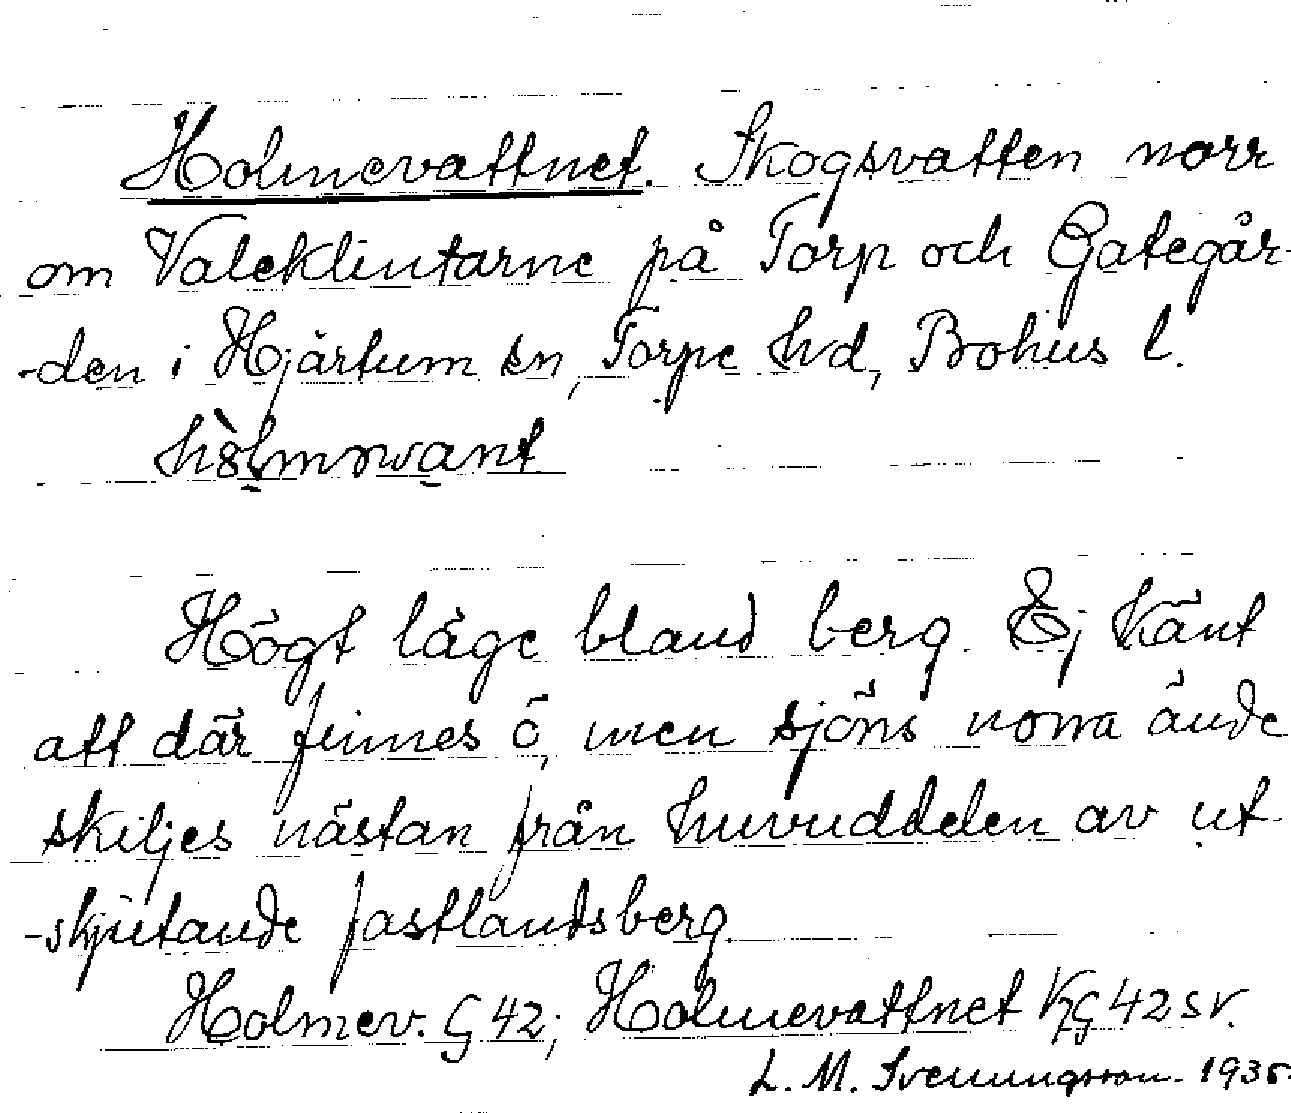 Holmevattnet. Skogsvatten norr
om Valeklintarne på Torp och Gategår-
-den i Hjärtum sn, Torpe hd, Bohus l.
Högt läge bland berg. Ej känt
att där finnes ö, men sjöns norra ände
skiljes nästan från huvuddelen av ut-
-skjutande fastlandsberg.
Holmev. G 42; Holmevattnet KG 42 SV.
L. M. Svenungsson. 1935.